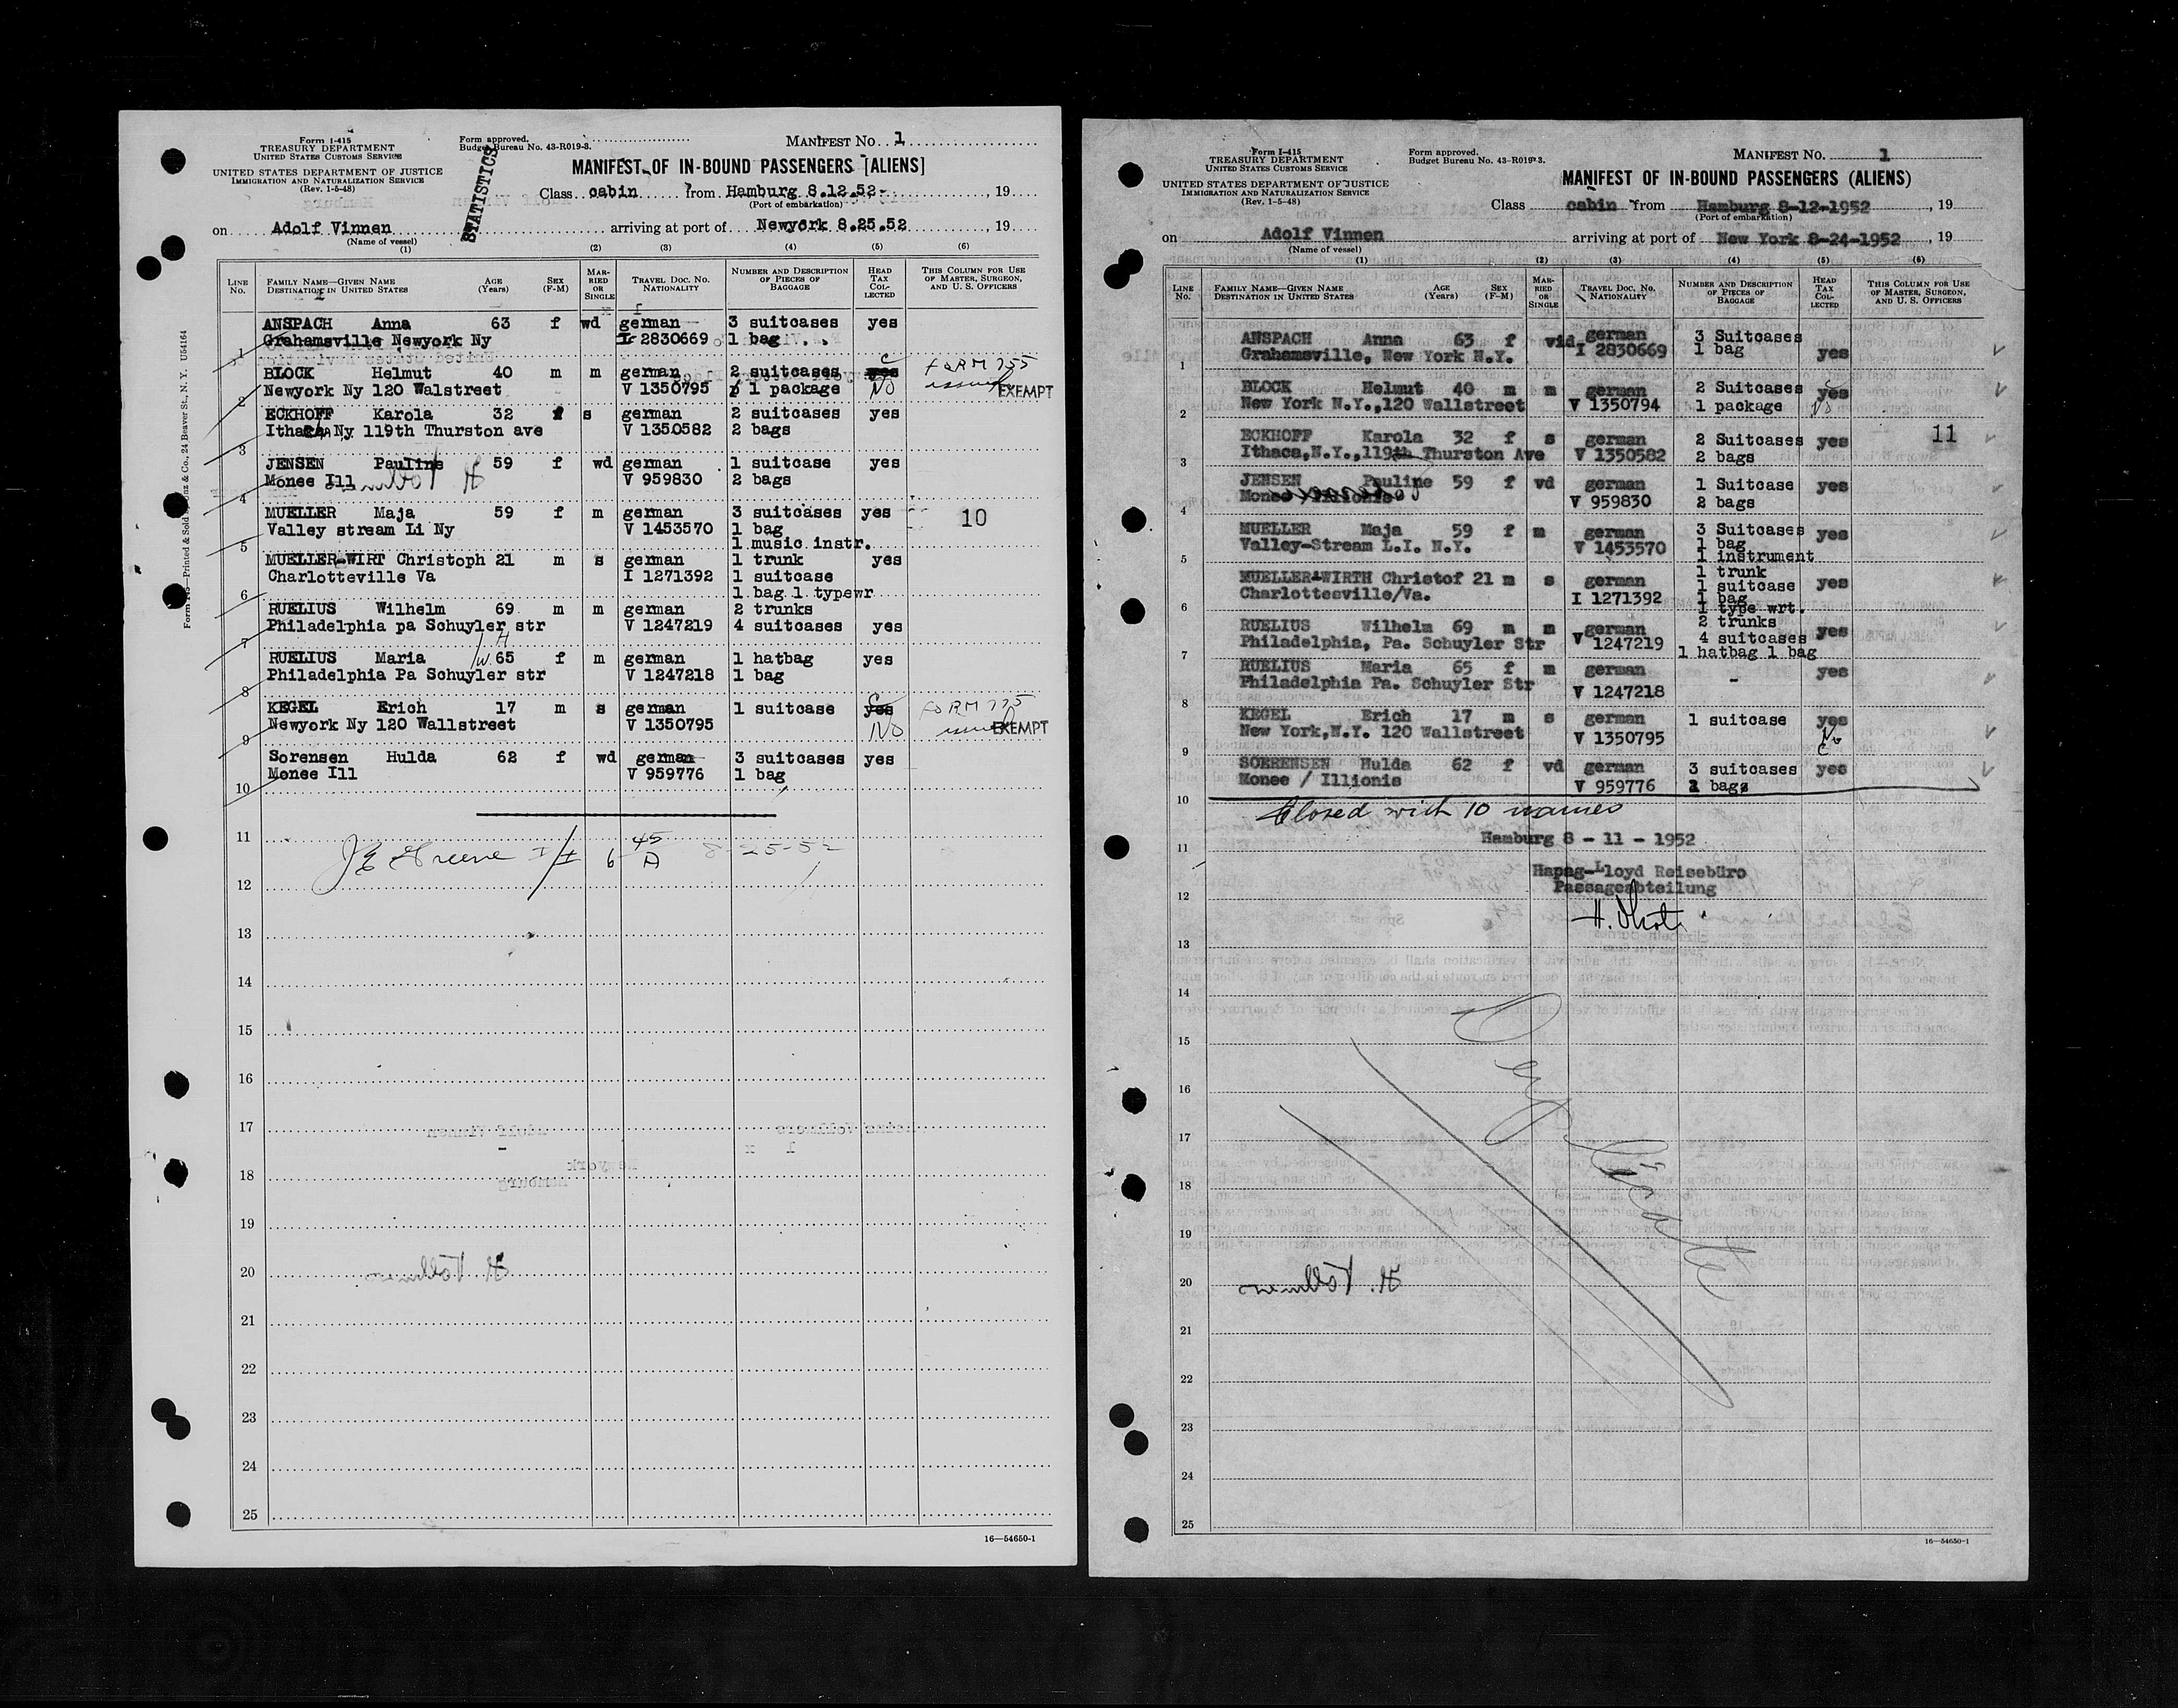 Form I-415
TREASURY DEPARTMENT
UNITED STATES CUSTOMS SERVICE
UNITED STATES DEPARTMENT OF JUSTICE
IMMIGRATION AND NATURALIZATION SERVICE
(Rev. 1-5-48)
Form approved.
Budget Bureau No. 43-R019-3.
STATISTICS
MANIFEST NO. 1
MANIFEST OF IN-BOUND PASSENGERS [ALIENS]
Class cabin from Hamburg 8.12.52- , 19
(Port of embarkation)
on Adolf Vinnen arriving at port of Newyork 8.25.52 , 19
(Name of vessel)
(1) (2) (3) (4) (5) (6)
LINE No. FAMILY NAME—GIVEN NAME DESTINATION IN UNITED STATES AGE (Years) SEX (F-M) MARRIED OR SINGLE TRAVEL DOC. NO. NATIONALITY NUMBER AND DESCRIPTION OF PIECES OF BAGGAGE HEAD TAX COLLECTED THIS COLUMN FOR USE OF MASTER, SURGEON, AND U. S. OFFICERS
ANSPACH Anna 63 f wd german 3 suitcases yes
1 Grahamsville Newyork Ny I 2830669 1 bag
BLOCK Helmut 40 m m german 2 suitcases yes C FORM
2 Newyork Ny 120 Walstreet V 1350795 1 package No issued EXEMPT
ECKHOFF Karola 32 f s german 2 suitcases yes
3 Ithaca Ny 119th Thurston ave V 1350582 2 bags
JENSEN Pauline 59 f wd german 1 suitcase yes
4 Monee Ill V 959830 2 bags
MUELLER Maja 59 f m german 3 suitcases yes 10
5 Valley stream Li Ny V 1453570 1 bag
1 music instr.
MUELLER-WIRT Christoph 21 m s german 1 trunk yes
Charlotteville Va I 1271392 1 suitcase
6 1 bag 1 typewr
RUELIUS Wilhelm 69 m m german 2 trunks
7 Philadelphia pa Schuyler str V 1247219 4 suitcases yes
RUELIUS Maria 65 f m german 1 hatbag yes
8 Philadelphia Pa Schuyler str V 1247218 1 bag
KEGEL Erich 17 m s german 1 suitcase yes C FORM
9 Newyork Ny 120 Wallstreet V 1350795 No issued EXEMPT
Sorensen Hulda 62 f wd german 3 suitcases yes
10 Monee Ill V 959776 1 bag
11
JE Greene I I 6 45 A 8-25-52
12
13
14
15
16
17
18
19
20
21
22
23
24
25
16—54650-1
Printed & Sold by & Co., 24 Beaver St., N. Y. U54164
Form I-415
TREASURY DEPARTMENT
UNITED STATES CUSTOMS SERVICE
UNITED STATES DEPARTMENT OF JUSTICE
IMMIGRATION AND NATURALIZATION SERVICE
(Rev. 1-5-48)
Form approved.
Budget Bureau No. 43-R019-3.
MANIFEST NO. 1
MANIFEST OF IN-BOUND PASSENGERS (ALIENS)
Class cabin from Hamburg 8-12-1952 , 19
(Port of embarkation)
on Adolf Vinnen arriving at port of New York 8-24-1952 , 19
(Name of vessel)
(1) (2) (3) (4) (5) (6)
LINE No. FAMILY NAME—GIVEN NAME DESTINATION IN UNITED STATES AGE (Years) SEX (F-M) MARRIED OR SINGLE TRAVEL DOC. NO. NATIONALITY NUMBER AND DESCRIPTION OF PIECES OF BAGGAGE HEAD TAX COLLECTED THIS COLUMN FOR USE OF MASTER, SURGEON, AND U. S. OFFICERS
ANSPACH Anna 63 f vid german 3 Suitcases
1 Grahamsville, New York N.Y. I 2830669 1 bag yes
BLOCK Helmut 40 m m german 2 Suitcases yes
2 New York N.Y.,120 Wallstreet V 1350794 1 package No
ECKHOFF Karola 32 f s german 2 Suitcases yes 11
3 Ithaca,N.Y.,119th Thurston Ave V 1350582 2 bags
JENSEN Pauline 59 f vd german 1 Suitcase yes
4 Monee Illionis V 959830 2 bags
MUELLER Maja 59 f m german 3 Suitcases yes
5 Valley-Stream L.I. N.Y. V 1453570 1 bag
1 instrument
MUELLER-WIRTH Christof 21 m s german 1 trunk
1 suitcase yes
6 Charlottesville/Va. I 1271392 1 bag
1 type wrt.
RUELIUS Wilhelm 69 m m german 2 trunks
7 Philadelphia, Pa. Schuyler Str V 1247219 4 suitcases yes
1 hatbag 1 bag
RUELIUS Maria 65 f m german yes
8 Philadelphia Pa. Schuyler Str V 1247218 -
KEGEL Erich 17 m s german 1 suitcase yes
9 New York,N.Y. 120 Wallstreet V 1350795 No C
SOERENSEN Hulda 62 f vd german 3 suitcases yes
10 Monee / Illionis V 959776 bags
Closed with 10 names
Hamburg 8 - 11 - 1952
11
Hapag-Lloyd Reisebüro
Passageabteilung
12
13
14
Duplicate
15
16
17
18
19
20
21
22
23
24
25
16—54650-1